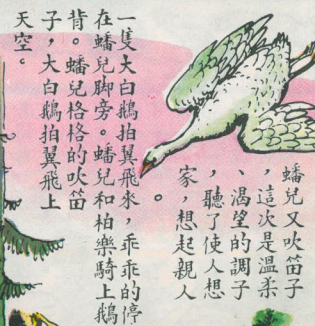 蟠兒又吹笛子
，這次是溫柔
、渴望的調子
，聽了使人想
家，想起親人
。
一隻大白鵝拍翼飛來，乖乖的停
在蟠兒脚旁。蟠兒和柏樂騎上鵝
背。蟠兒格格的吹笛
子，大白鵝拍翼飛上
天空。